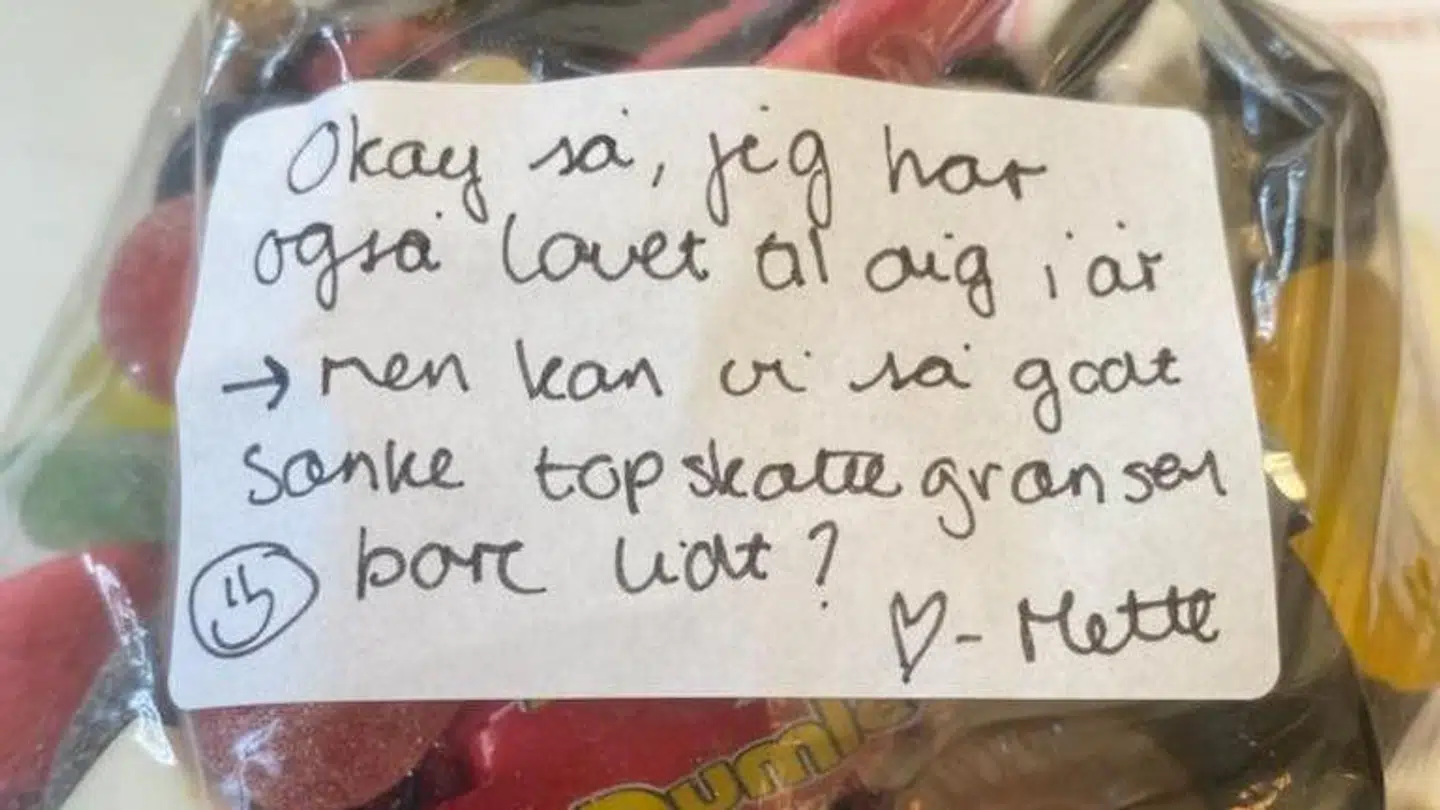 Okay så, jeg har
også lovet til dig i år
→ men kan vi så godt
sænke topskattegrænsen
bare lidt?
♡ - Mette
Dumle